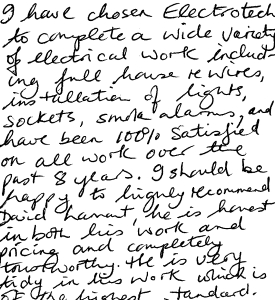 I have chosen Electrotech
to complete a wide variety
of electrical work includ-
ing full house rewires,
installation of lights,
sockets, smoke alarms, and
have been 100% satisfied
on all work over the
past 8 years. I should be
happy to highly recommend
David, he is honest
in both his work and
pricing and completely
trustworthy. He is very
tidy in his work which is
of the highest standard.